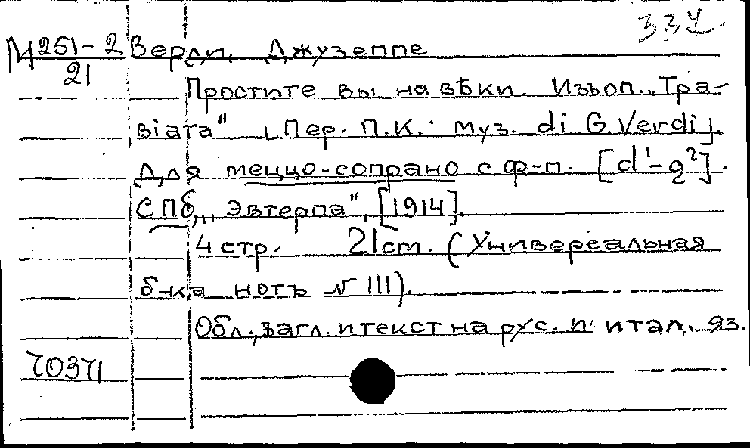 337.
М 251-2 Верди, Джузеппе
21
Простите вы навѣки. Изъ оп. „Тра-
вiата" [Пер. П.К. муз. di G. Verdi].
Для меццо-сопрано с ф-п. [d¹-g²].
СПб, „Эвтерпа", [1914].
4 стр. 21 cm. (Универсальная
б-ка нотъ № 111).
Обл., загл. и текст на рус. и итал. яз.
70371